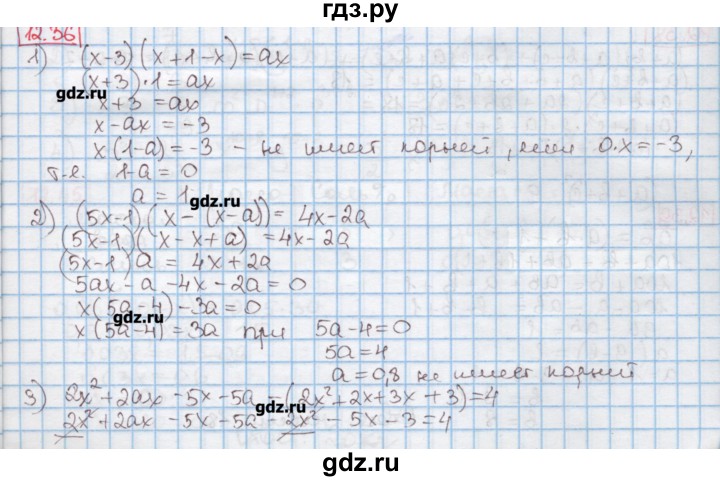 гдз.ру
12.36
1) (x-3)(x+1-x)=ax
(x+3)·1=ax
гдз.ру
x+3=ax
x-ax=-3
x(1-a)=-3 - не имеет корней, если 0·x=-3,
т.е. 1-a=0
a=1
гдз.ру
2) (5x-1)(x-(x-a))=4x-2a
(5x-1)(x-x+a)=4x-2a
(5x-1)a=4x+2a
гдз.ру
5ax-a-4x-2a=0
x(5a-4)-3a=0
гдз.ру
x(5a-4)=3a при 5a-4=0
5a=4
a=0,8 не имеет корней
3) 2x²+2ax-5x-5a-(2x²+2x+3x+3)=4
гдз.ру
2x²+2ax-5x-5a-2x²-5x-3=4
гдз.ру